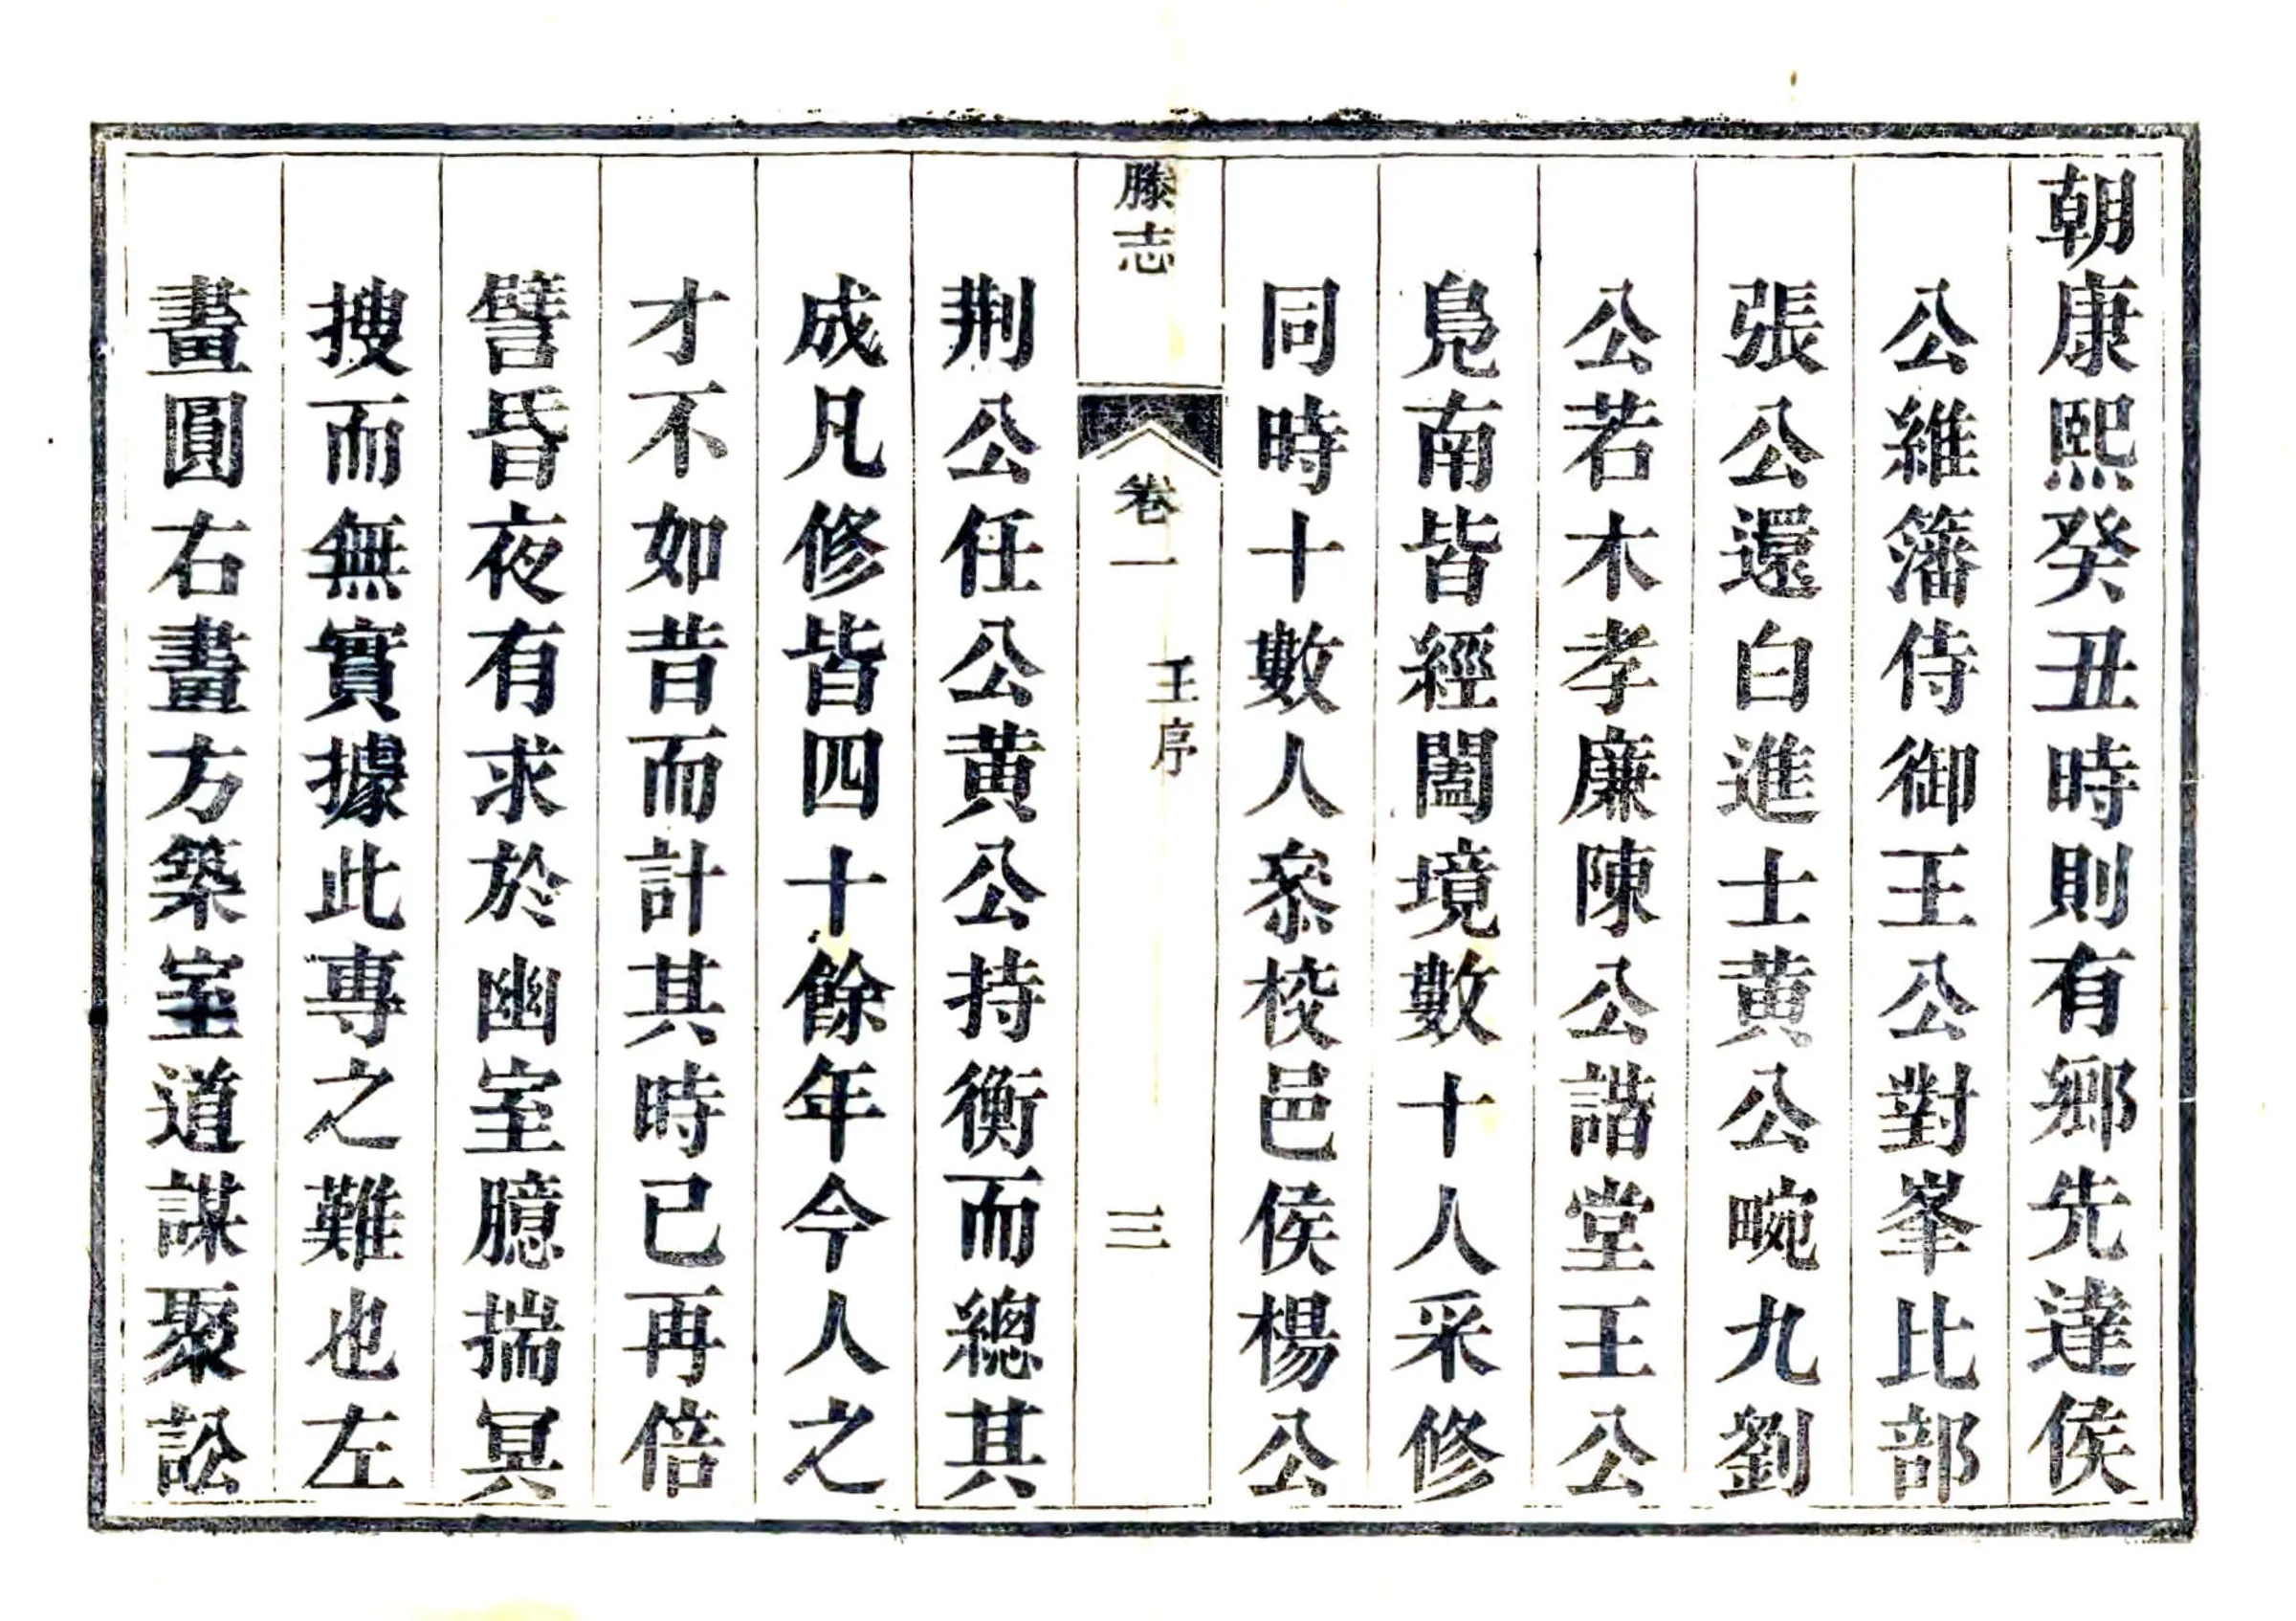 朝康熙癸丑時則有鄉先達侯
公維籓侍御王公對峯比部
張公還白進士黃公畹九劉
公若木孝廉陳公諧堂王公
鳧南皆經闔境數十人采修
同時十數人叅校邑侯楊公
滕志 卷一 王序 三
荆公任公黃公持衡而總其
成凡修皆四十餘年今人之
才不如昔而計其時已再倍
譬昏夜有求於幽室臆揣冥
搜而無實據此專之難也左
畫圓右畫方築室道謀聚訟